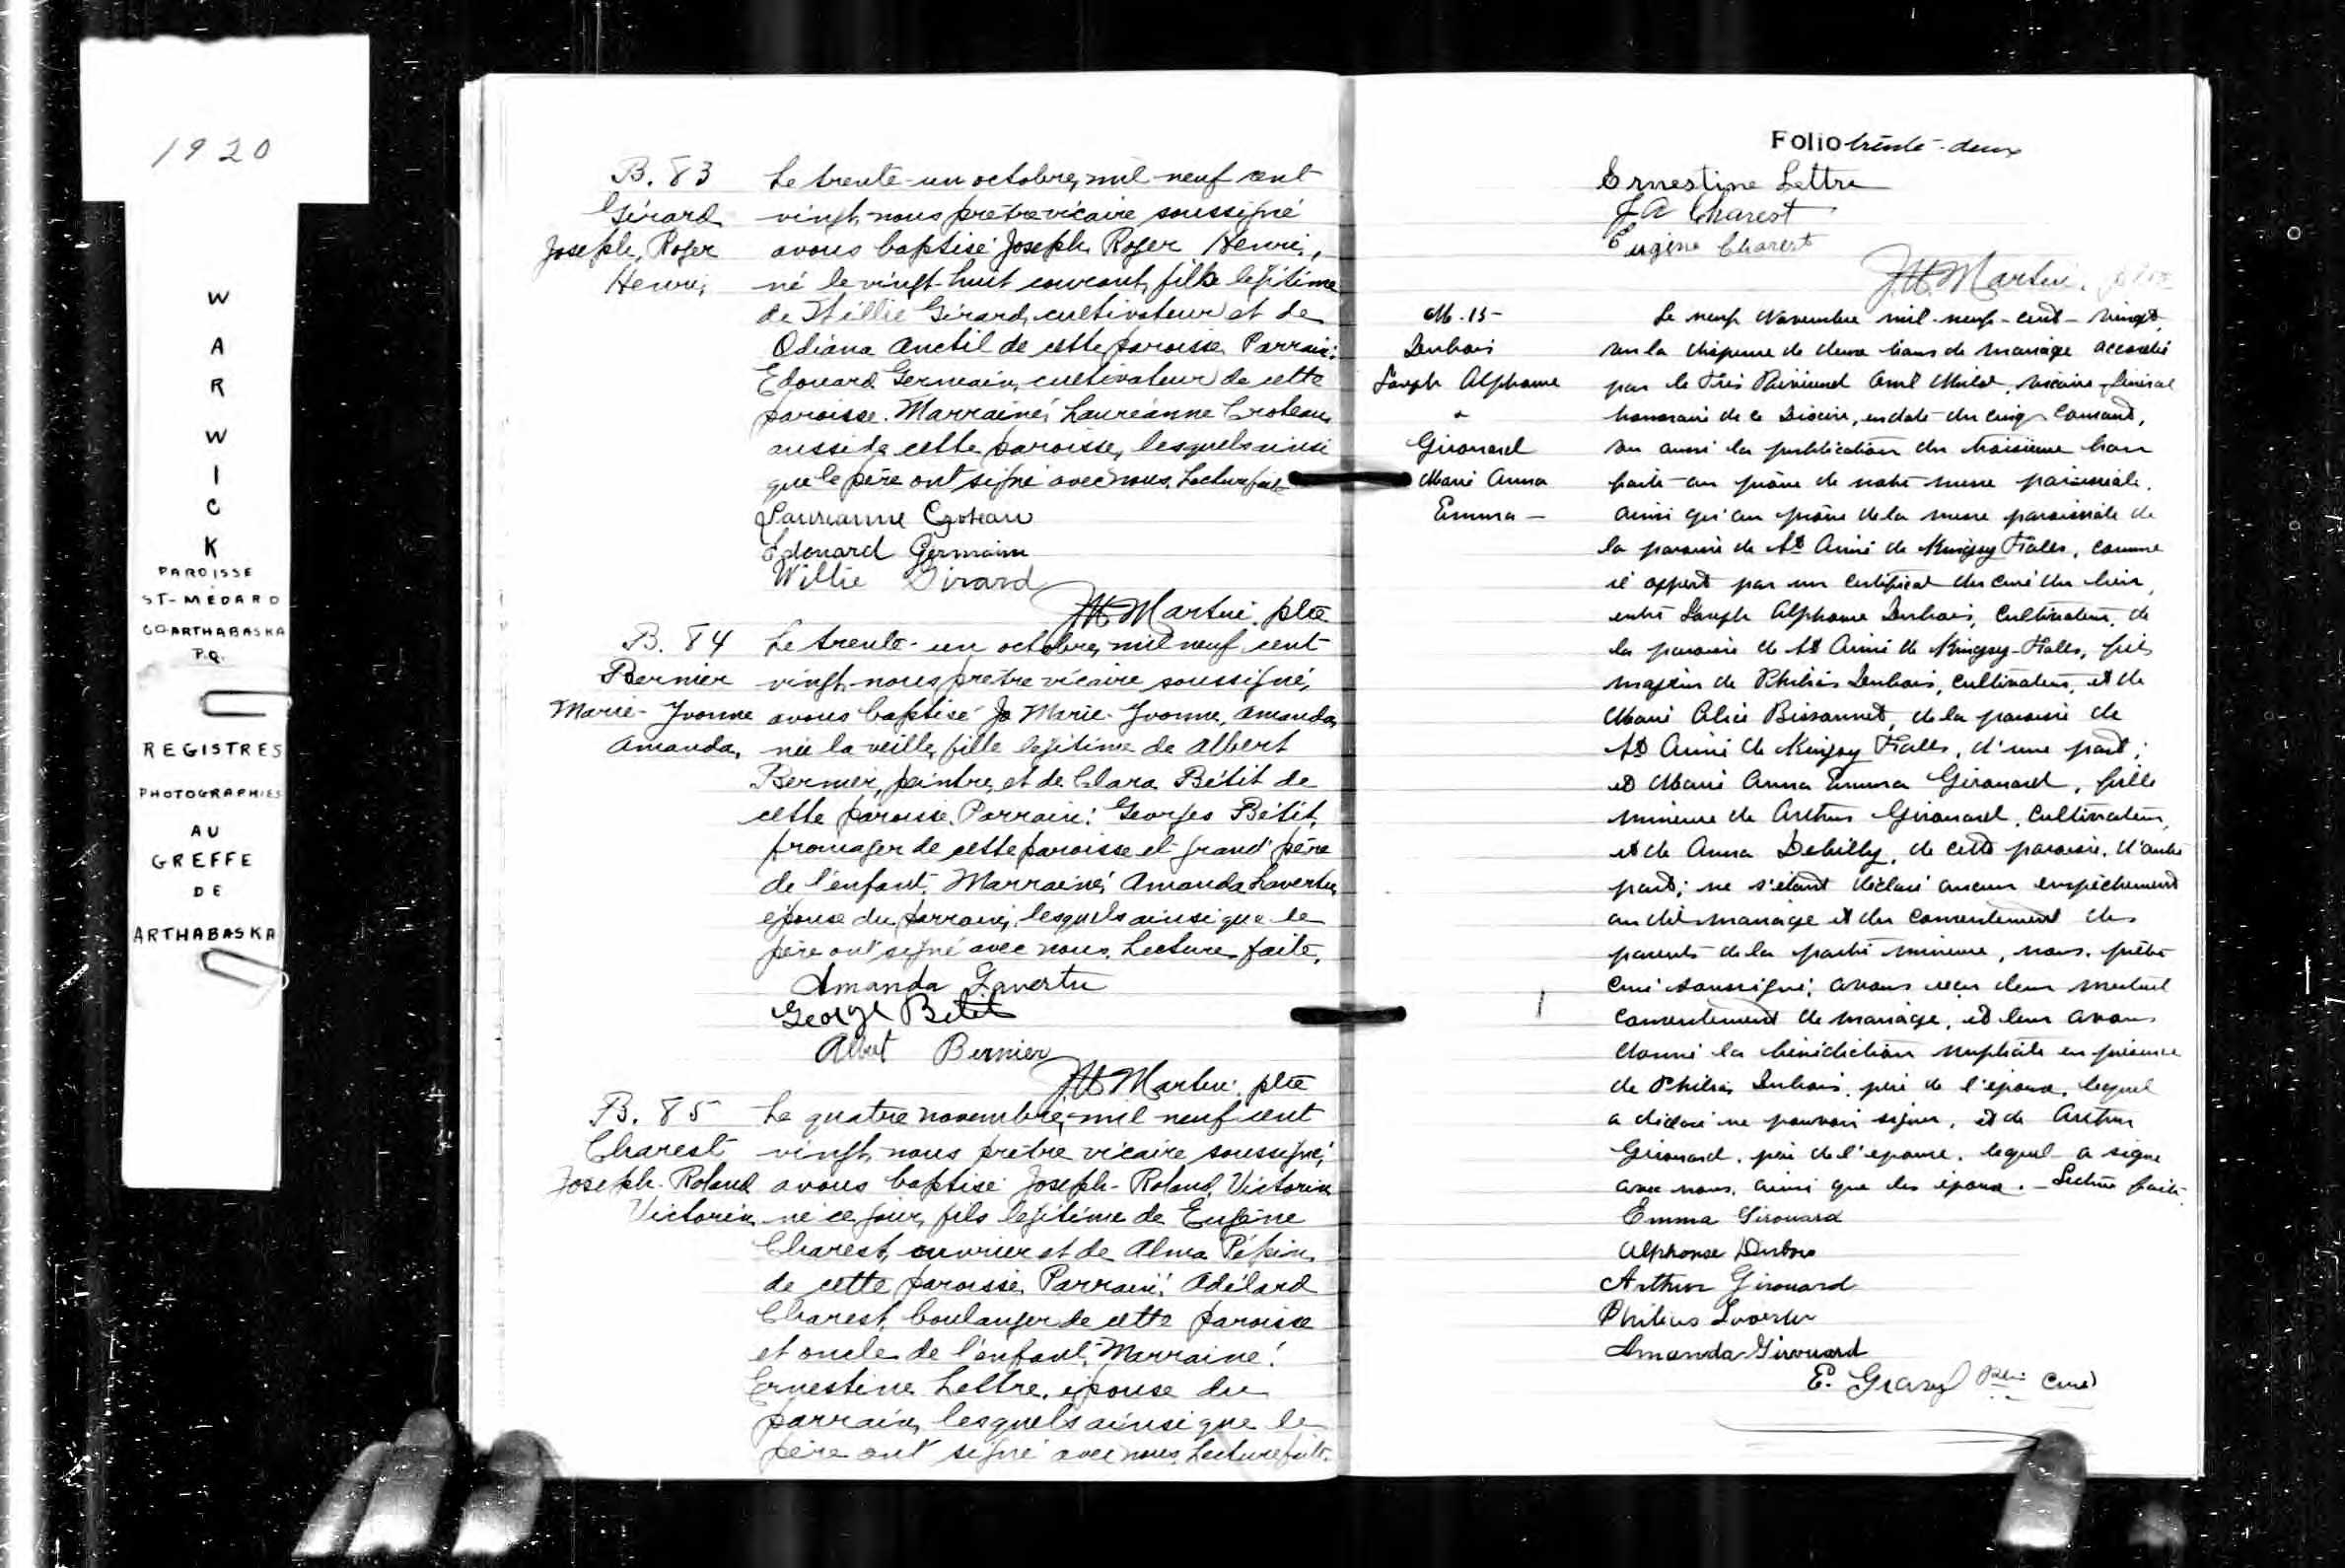 1920
W
A
R
W
I
C
K
PAROISSE
ST-MÉDARD
CO-ARTHABASKA
P.Q.
REGISTRES
PHOTOGRAPHIES
AU
GREFFE
DE
ARTHABASKA
B. 83
Girard
Joseph, Roger
Henri,
Le trente-un octobre, mil neuf cent
vingt, nous prêtre vicaire soussigné
avons baptisé Joseph Roger Henri,
né le vingt-huit courant, fils légitime
de Willie Girard, cultivateur et de
Odiana Anctil de cette paroisse. Parrain:
Edouard Germain, cultivateur de cette
paroisse. Marraine: Lauréanne Croteau
aussi de cette paroisse, lesquels ainsi
que le père ont signé avec nous. Lecture faite
Lauréanne Croteau
Edouard Germain
Willie Girard
J.H. Martin, ptre
B. 84
Bernier
Marie-Yvonne
Amanda,
Le trente-un octobre, mil neuf cent
vingt, nous prêtre vicaire soussigné,
avons baptisé Jo Marie-Yvonne, Amanda,
née la veille, fille légitime de Albert
Bernier, peintre, et de Clara Bétit de
cette paroisse. Parrain: Georges Bétit,
fromager de cette paroisse et grand'père
de l'enfant. Marraine: Amanda Lavertu
épouse du parrain, lesquels ainsi que le
père ont signé avec nous. Lecture faite.
Amanda Lavertu
George Betit
Albert Bernier
J.H. Martin, ptre
B. 85
Charest
Joseph-Roland
Victorin
Le quatre novembre, mil neuf cent
vingt, nous prêtre vicaire soussigné,
avons baptisé Joseph-Roland, Victorin
né ce jour, fils légitime de Eugène
Charest, ouvrier et de Alma Pépin,
de cette paroisse. Parrain: Adélard
Charest, boulanger de cette paroisse
et oncle de l'enfant. Marraine:
Ernestine Lettre, épouse du
parrain, lesquels ainsi que le
père ont signé avec nous. Lecture faite.
Folio trente-deux
Ernestine Lettre
J A Charest
Eugène Charest
J.H. Martin, ptre
M. 13-
Dubois
Joseph Alphonse
&
Girouard
Marie Anna
Emma -
Le neuf Novembre mil-neuf-cent-vingt,
vu la dispense de deux bans de mariage accordée
par le Très Révérend Milot, vicaire-général
honoraire de ce Diocèse, en date du cinq courant,
vu aussi la publication du troisième ban
faite au prône de notre messe paroissiale,
ainsi qu'au prône de la messe paroissiale de
la paroisse de St Aimé de Kingsey Falls, comme
il appert par un certificat du curé du lieu,
entre Joseph Alphonse Dubois, cultivateur, de
la paroisse de St Aimé de Kingsey-Falls, fils
majeur de Philias Dubois, cultivateur, et de
Marie Alice Bissonnet, de la paroisse de
St Aimé de Kingsey Falls, d'une part;
et Marie Anna Emma Girouard, fille
mineure de Arthur Girouard, cultivateur,
et de Anna Debilly, de cette paroisse, d'autre
part; ne s'étant déclaré aucun empêchement
au dit mariage et du consentement des
parents de la partie mineure, nous, prêtre
curé soussigné, avons reçu leur mutuel
consentement de mariage, et leur avons
donné la bénédiction nuptiale en présence
de Philias Dubois, père de l'époux, lequel
a déclaré ne pouvoir signer, et de Arthur
Girouard, père de l'épouse, lequel a signé
avec nous, ainsi que les époux. - Lecture faite
Emma Girouard
Alphonse Dubois
Arthur Girouard
Philias Laverter
Amanda Girouard
E. Gravel Ptre Curé